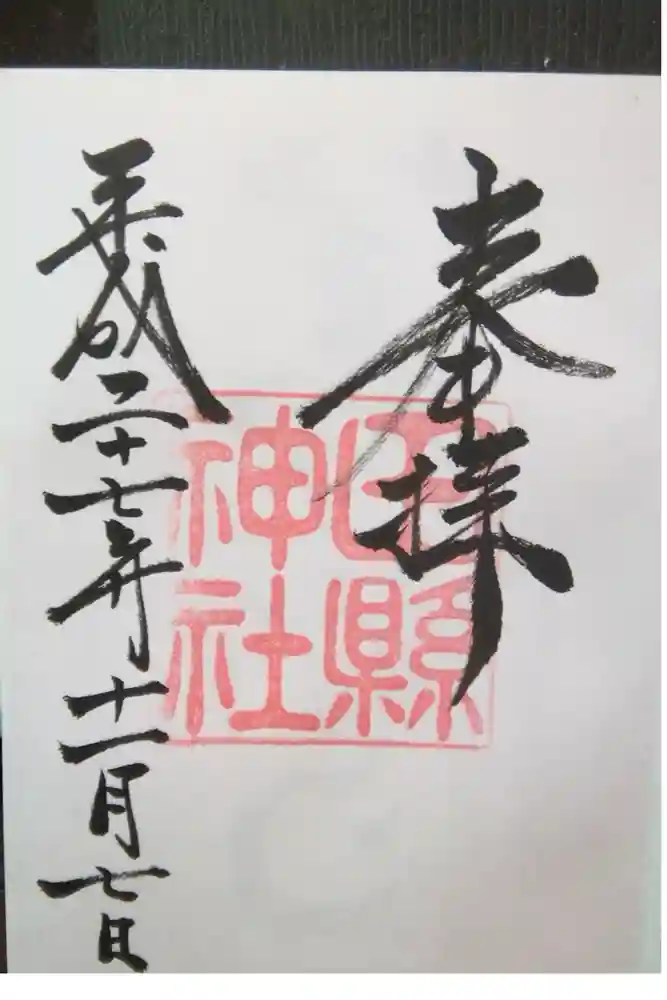 奉拝
田縣
神社
平成二十七年十一月七日